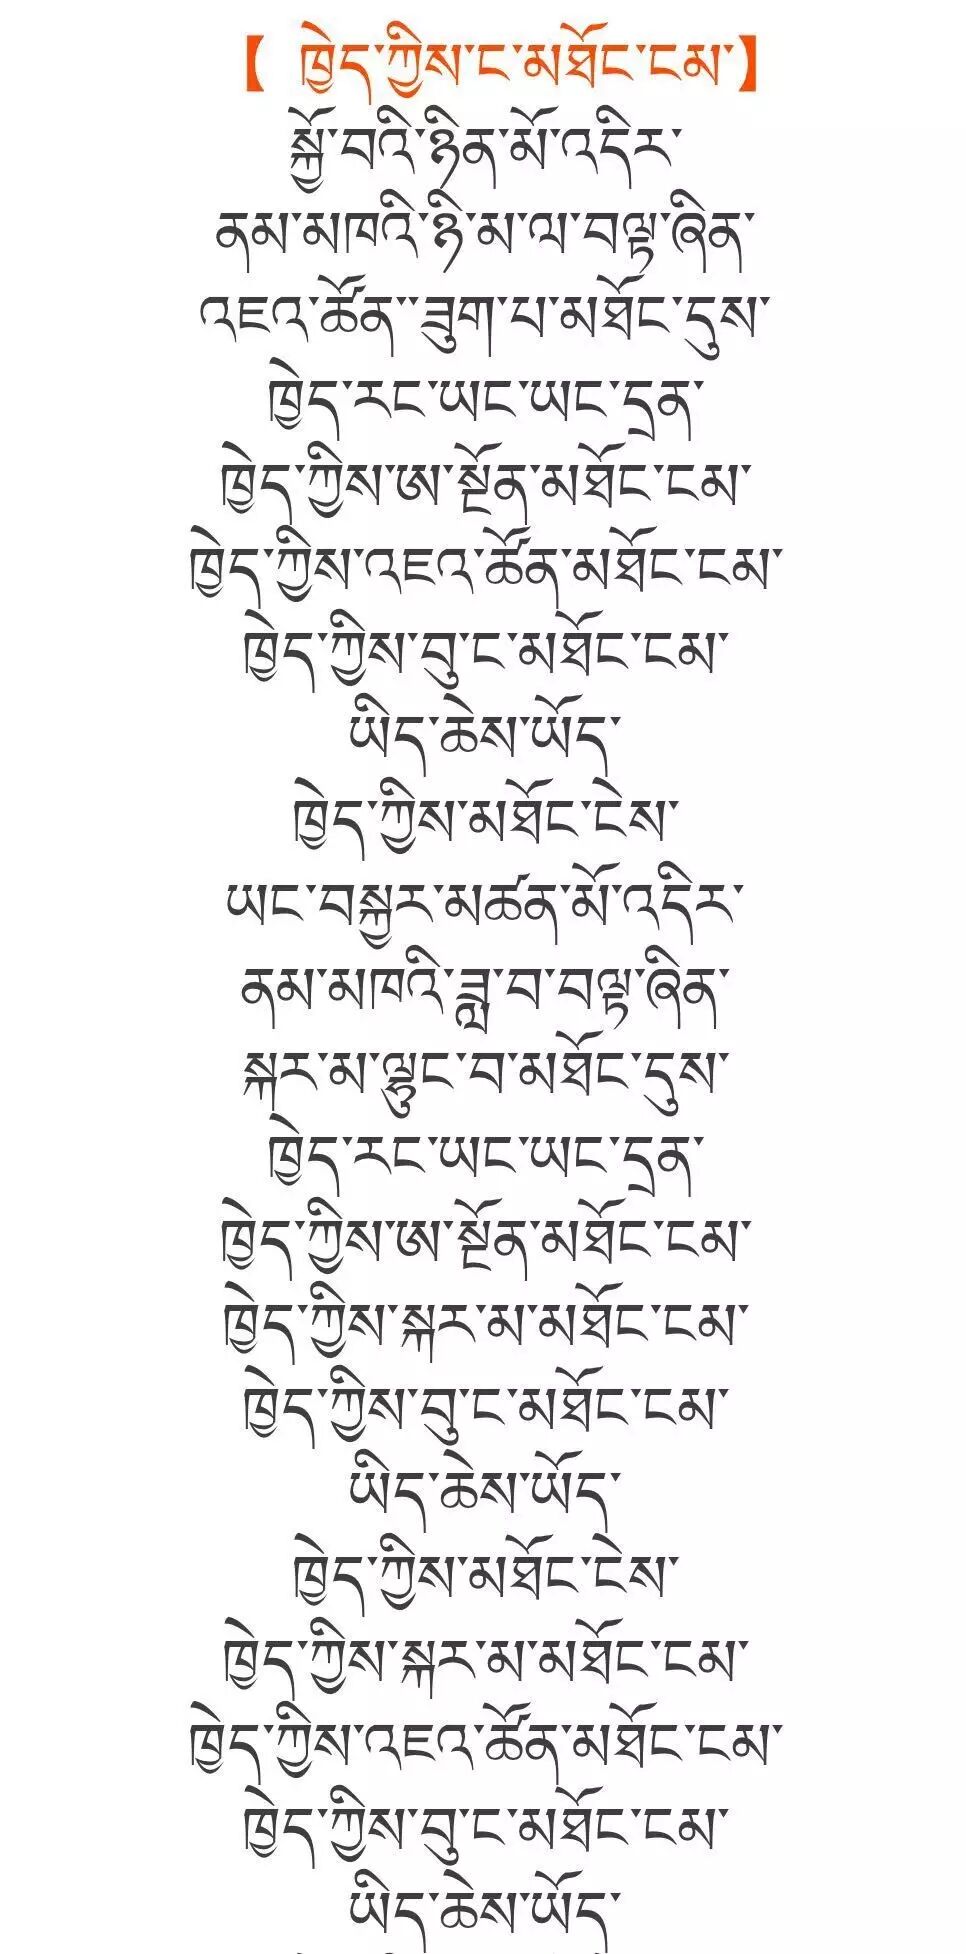 【 ཁྱེད་ཀྱིས་ང་མཐོང་ངམ་】
སྐྱོ་བའི་ཉིན་མོ་འདིར་
ནམ་མཁའི་ཉི་མ་ལ་བལྟ་ཞིན་
འཇའ་ཚོན་་ཟུག་པ་མཐོང་དུས་
ཁྱེད་རང་ཡང་ཡང་དྲན་
ཁྱེད་ཀྱིས་ཨ་སྔོན་མཐོང་ངམ་
ཁྱེད་ཀྱིས་འཇའ་ཚོན་མཐོང་ངམ་
ཁྱེད་ཀྱིས་བུ་ང་མཐོང་ངམ་
ཡིད་ཆེས་ཡོད་
ཁྱེད་ཀྱིས་མཐོང་ངེས་
ཡང་བསྐྱར་མཚན་མོ་འདིར་
ནམ་མཁའི་ཟླ་བ་བལྟ་ཞིན་
སྐར་མ་ལྷུང་བ་མཐོང་དུས་
ཁྱེད་རང་ཡང་ཡང་དྲན་
ཁྱེད་ཀྱིས་ཨ་སྔོན་མཐོང་ངམ་
ཁྱེད་ཀྱིས་སྐར་མ་མཐོང་ངམ་
ཁྱེད་ཀྱིས་བུ་ང་མཐོང་ངམ་
ཡིད་ཆེས་ཡོད་
ཁྱེད་ཀྱིས་མཐོང་ངེས་
ཁྱེད་ཀྱིས་སྐར་མ་མཐོང་ངམ་
ཁྱེད་ཀྱིས་འཇའ་ཚོན་མཐོང་ངམ་
ཁྱེད་ཀྱིས་བུ་ང་མཐོང་ངམ་
ཡིད་ཆེས་ཡོད་